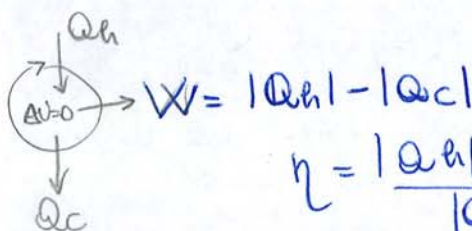 Qh
ΔU=0 W = |Qh| - |Qc|
η = |Qh|
Qc